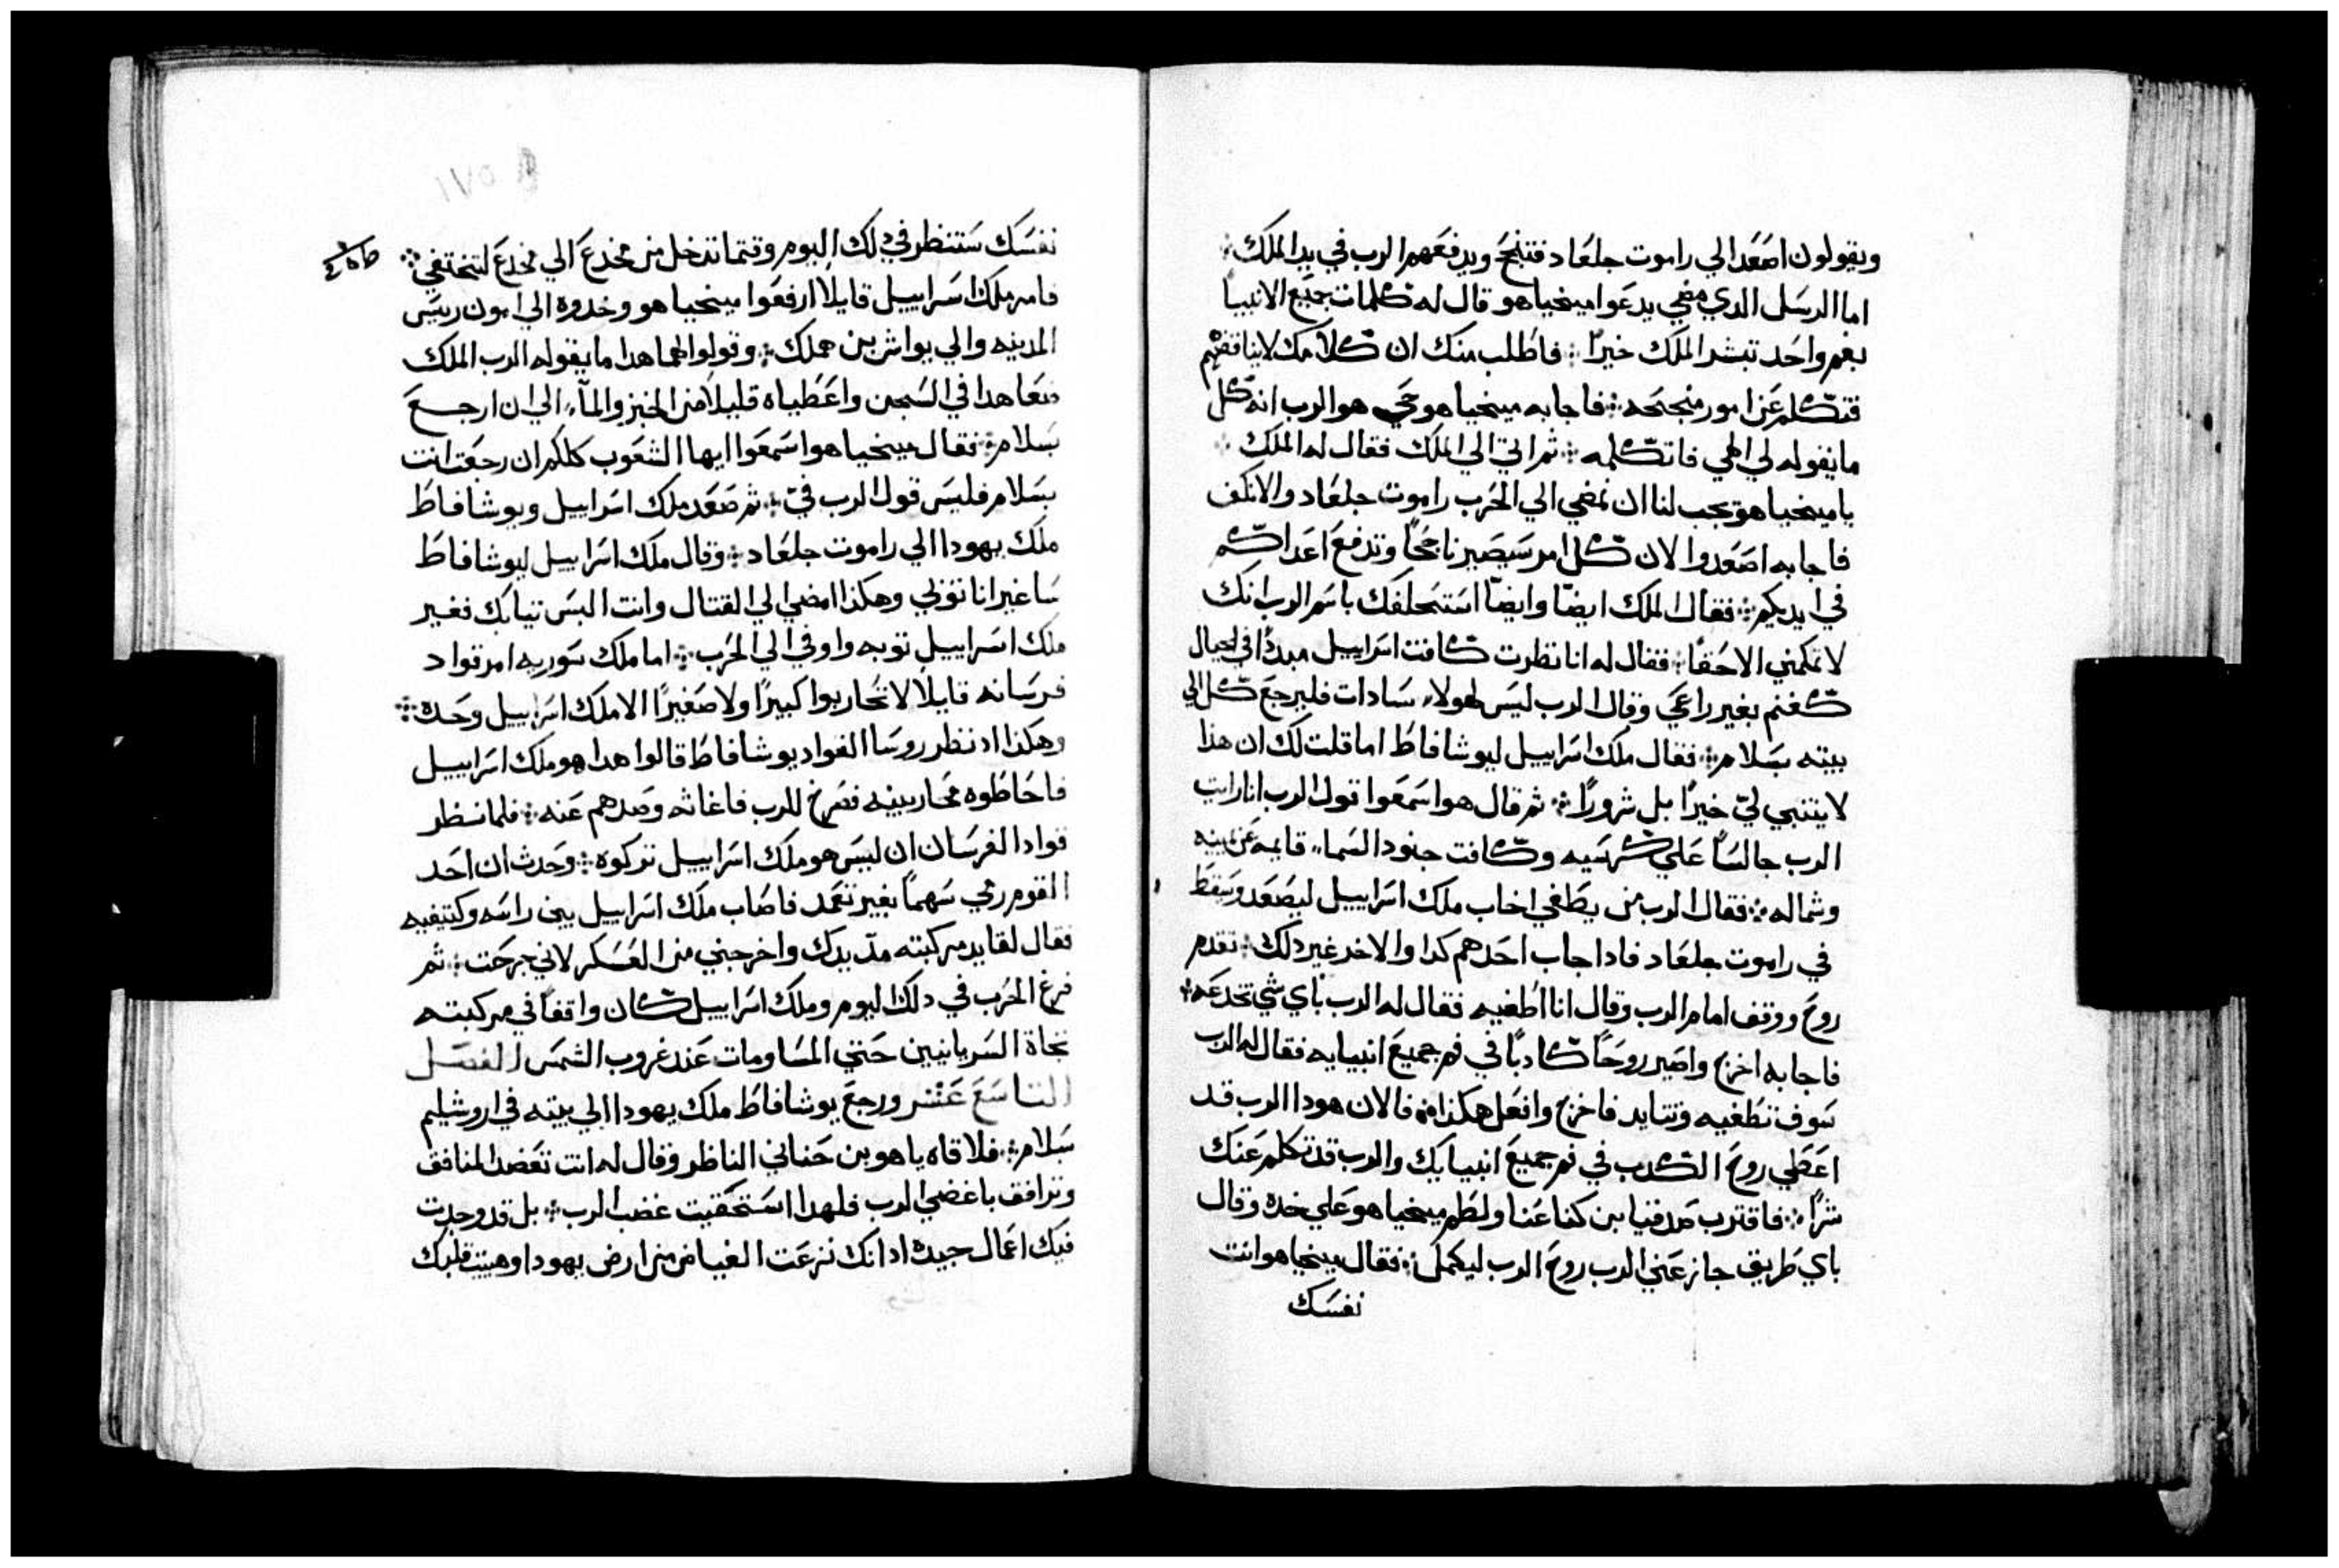 ويقولون اصعد الي راموت جلعاد فتنجح ويدفعهم الرب في يد الملك
اما الرسل الدي مضي يدعوا مينحياهو قال له كلمات جميع الانبيا
بفم واحد تبشر الملك خيرًا فاطلب منك ان كلامك لا يناقضهم
فتكلم عن امور منجحه فاجابه مينحياهو حي هو الرب انه كل
ما يقوله لي الهي فاتكلمه ثم اتي الي الملك فقال له الملك
يا مينحياهو يجب لنا ان نمضي الي الحرب راموت جلعاد والا نكف
فاجابه اصعدوا لان كل امر سيصير ناجحًا وتدفع اعداكم
في ايديكم فقال الملك ايضًا وايضًا استحلفك باسم الرب انك
لا تكلمني الا حقًا فقال له انا نظرت كافت اسراييل مبددًا في الجبال
كغنم بغير راعي وقال الرب ليس لهولاء سادات فليرجع كل الي
بيته بسلام فقال ملك اسراييل ليوشافاط اما قلت لك ان هذا
لا يتنبي لي خيرًا بل شرورًا ثم قال هو اسمعوا قول الرب انا رايت
الرب جالسًا علي كرسيه وكافت جنود السماء قايمه عن يمينه
وشماله فقال الرب من يطغي اخاب ملك اسراييل ليصعد ويسقط
في راموت جلعاد فادا جاب احدهم كدا والاخر غير دلك تقدم
روح ووقف امام الرب وقال انا اطغيه فقال له الرب باي شي تخدعه
فاجابه اخرج واصير روحًا كادبًا في فم جميع انبيايه فقال له الرب
سوف تطغيه وتتايد فاخرج وافعل هكذا فالان هودا الرب قد
اعطي روح الكدب في فم جميع انبيايك والرب قد تكلم عنك
شرًا فاقترب صدقيا بن كنعنا ولطم مينحياهو علي خده وقال
باي طريق جاز عني الرب روح الرب ليكلمك فقال مينحياهو انت
نفسك
نفسك ستنظر في دلك اليوم وقتما تدخل من مخدع الي مخدع لتختفي
فامر ملك اسراييل قايلًا ارفعوا مينحياهو وخدوه الي امون رييس
المدينه والي يواش بن هملك وقولوا لهما هدا ما يقوله الرب الملك
ضعا هدا في السجن واعطياه قليلًا من الخبز والمآء الي ان ارجع
بسلام فقال مينحياهو اسمعوا ايها الشعوب كلكم ان رجعت انت
بسلام فليس قول الرب فيّ ثم صعد ملك اسراييل ويوشافاط
ملك يهودا الي راموت جلعاد وقال ملك اسراييل ليوشافاط
ساغير انا توبي وهكذا امضي الي القتال وانت البس تيابك فغير
ملك اسراييل توبه واوفي الي الحرب اما ملك سوريه امر قواد
فرسانه قايلًا لا تحاربوا كبيرًا ولا صغيرًا الا ملك اسراييل وحده
وهكذا اد نظر روسا القواد يوشافاط قالوا هدا هو ملك اسراييل
فاحاطوه محاربينه فصرخ للرب فاغاثه وصدهم عنه فلما نظر
قواد الفرسان ان ليس هو ملك اسراييل تركوه وحدث ان احد
القوم رمي سهمًا بغير تعمد فاصاب ملك اسراييل بين راسه وكتيفيه
فقال لقايد مركبته مدّ يدك واخرجني من العسكر لاني جرحت ثم
فرغ الحرب في دلك اليوم وملك اسراييل كان واقفًا في مركبته
تجاة السريانيين حتي المسا ومات عند غروب الشمس الفصل
التاسع عشر ورجع يوشافاط ملك يهودا الي بيته في اروشليم
بسلام فلاقاه ياهو بن حناني الناظر وقال له انت تعضد المنافق
وترافق باغضي الرب فلهدا استحقيت غضب الرب بل قد وجدت
فيك اعمال جيده اد انك نزعت الغياض من ارض يهودا وهييت قلبك